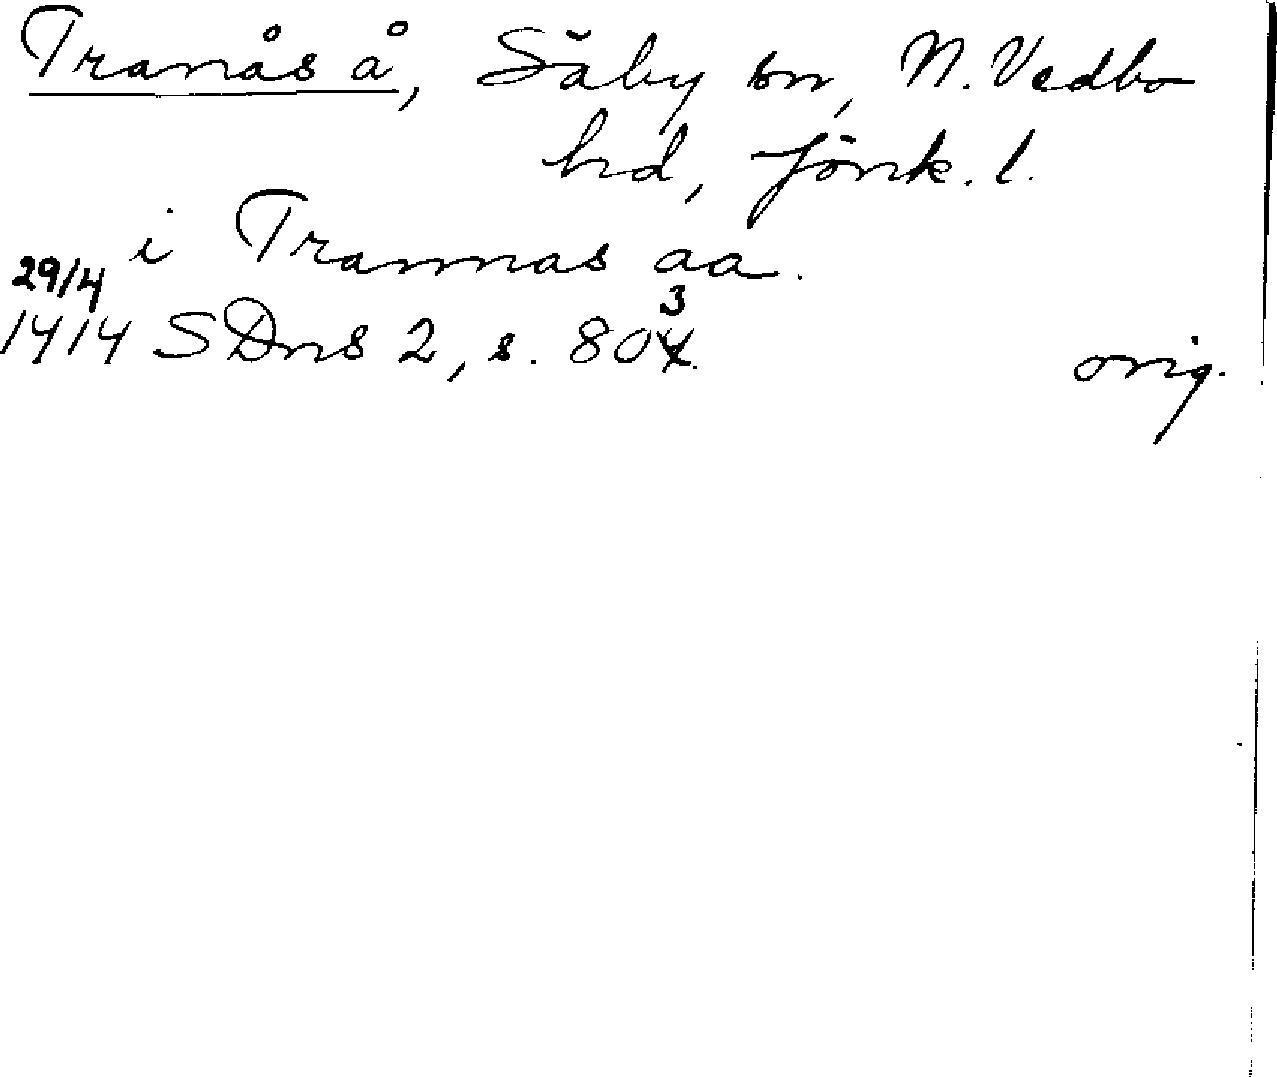 Tranås å, Säby sn, N. Vedbo
hd, Jönk. l.
i Trannas aa.
29/4
1414 SDns 2, s. 803
orig.